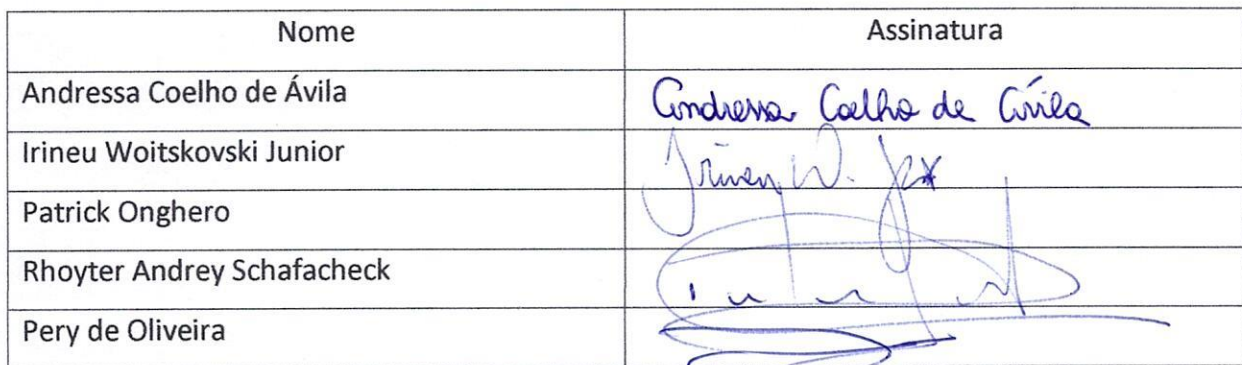 Nome Assinatura
Andressa Coelho de Ávila Andressa Coelho de Ávila
Irineu Woitskovski Junior Irineu W. Jr
Patrick Onghero
Rhoyter Andrey Schafacheck
Pery de Oliveira